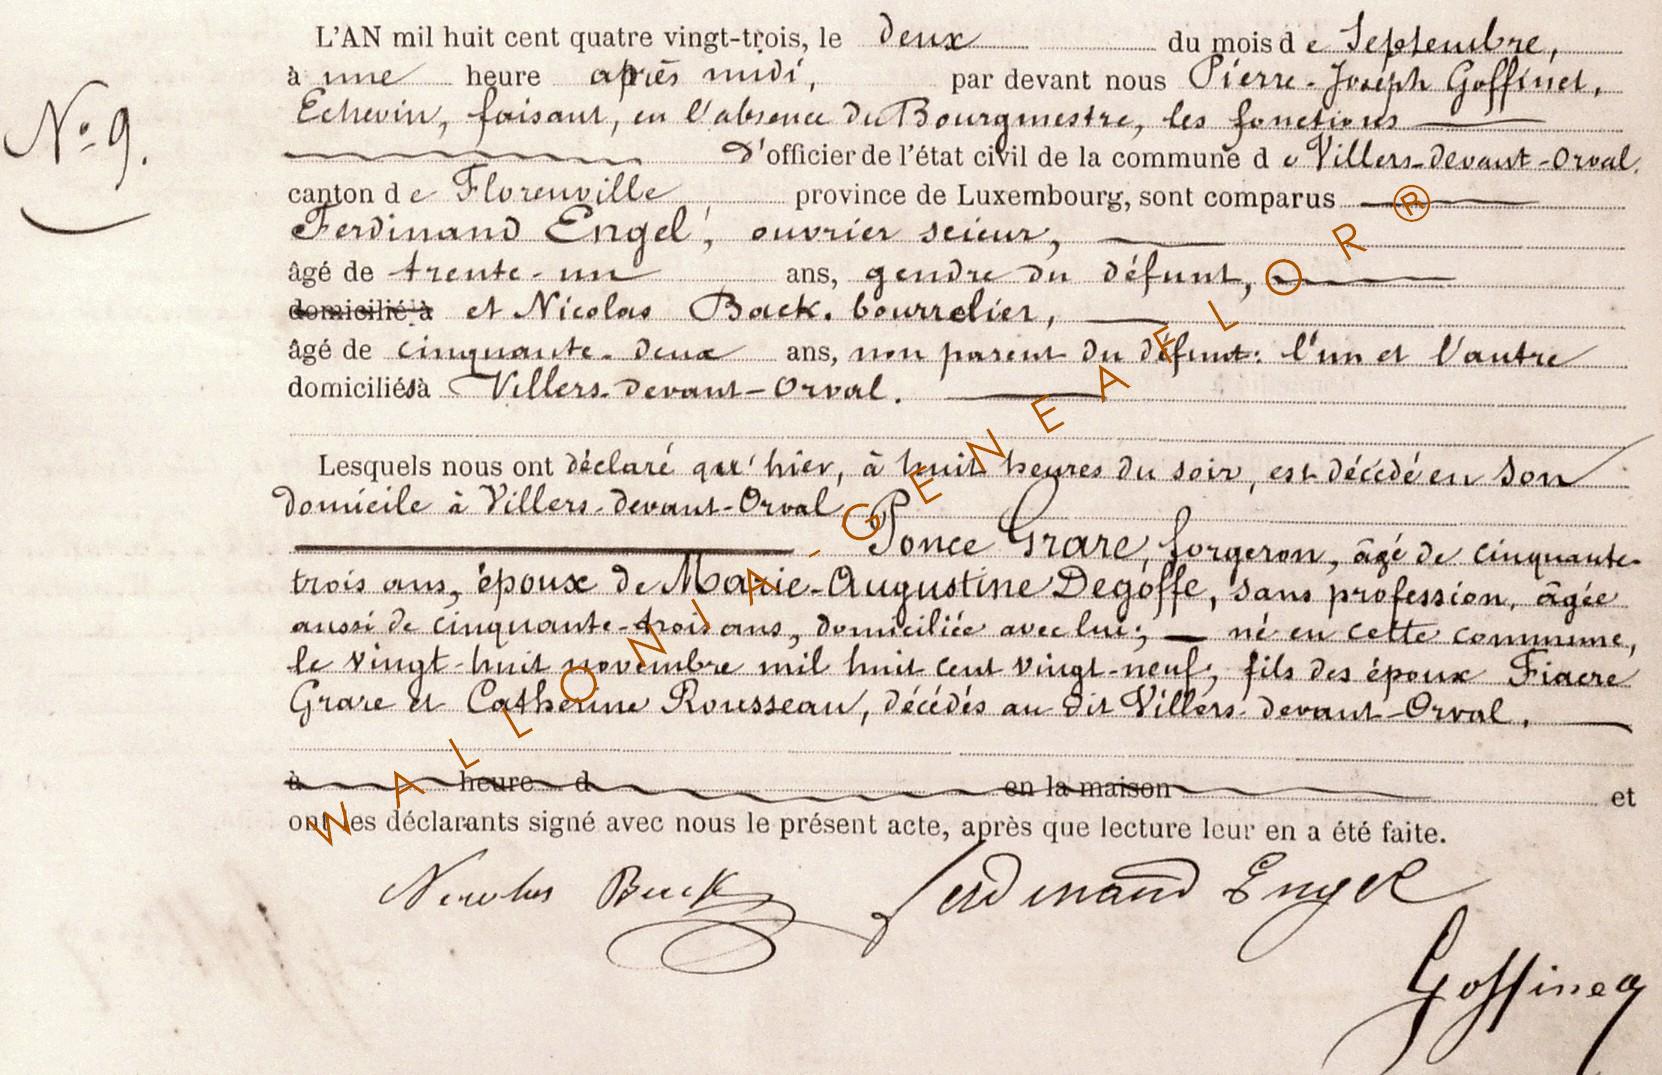 L'AN mil huit cent quatre vingt-trois, le deux du mois de Septembre,
à une heure après midi, par devant nous Pierre-Joseph Goffinet,
N° 9.
Echevin, faisant, en l'absence du Bourgmestre, les fonctions
d'officier de l'état civil de la commune de Villers-devant-Orval.
canton de Florenville, province de Luxembourg, sont comparus
Ferdinand Engel, ouvrier scieur,
âgé de trente-un ans, gendre du défunt,
domicilié à et Nicolas Back. bourrelier,
âgé de cinquante-deux ans, non parent du défunt: l'un et l'autre
domiciliés à Villers-devant-Orval.
Lesquels nous ont déclaré qu'hier, à huit heures du soir, est décédé en son
domicile à Villers-devant-Orval
Ponce Grare, forgeron, âgé de cinquante-
trois ans, époux de Marie-Augustine Degoffe, sans profession, âgée
aussi de cinquante-trois ans, domiciliée avec lui; né en cette commune,
le vingt-huit novembre mil huit cent vingt-neuf, fils des époux Fiacre
Grare et Catherine Rousseau, décédés au dit Villers-devant-Orval.
à heure d en la maison et
ont les déclarants signé avec nous le présent acte, après que lecture leur en a été faite.
Nicolas Back Ferdinand Engel
Goffinet
WALLONIA-GENEAFLOR®